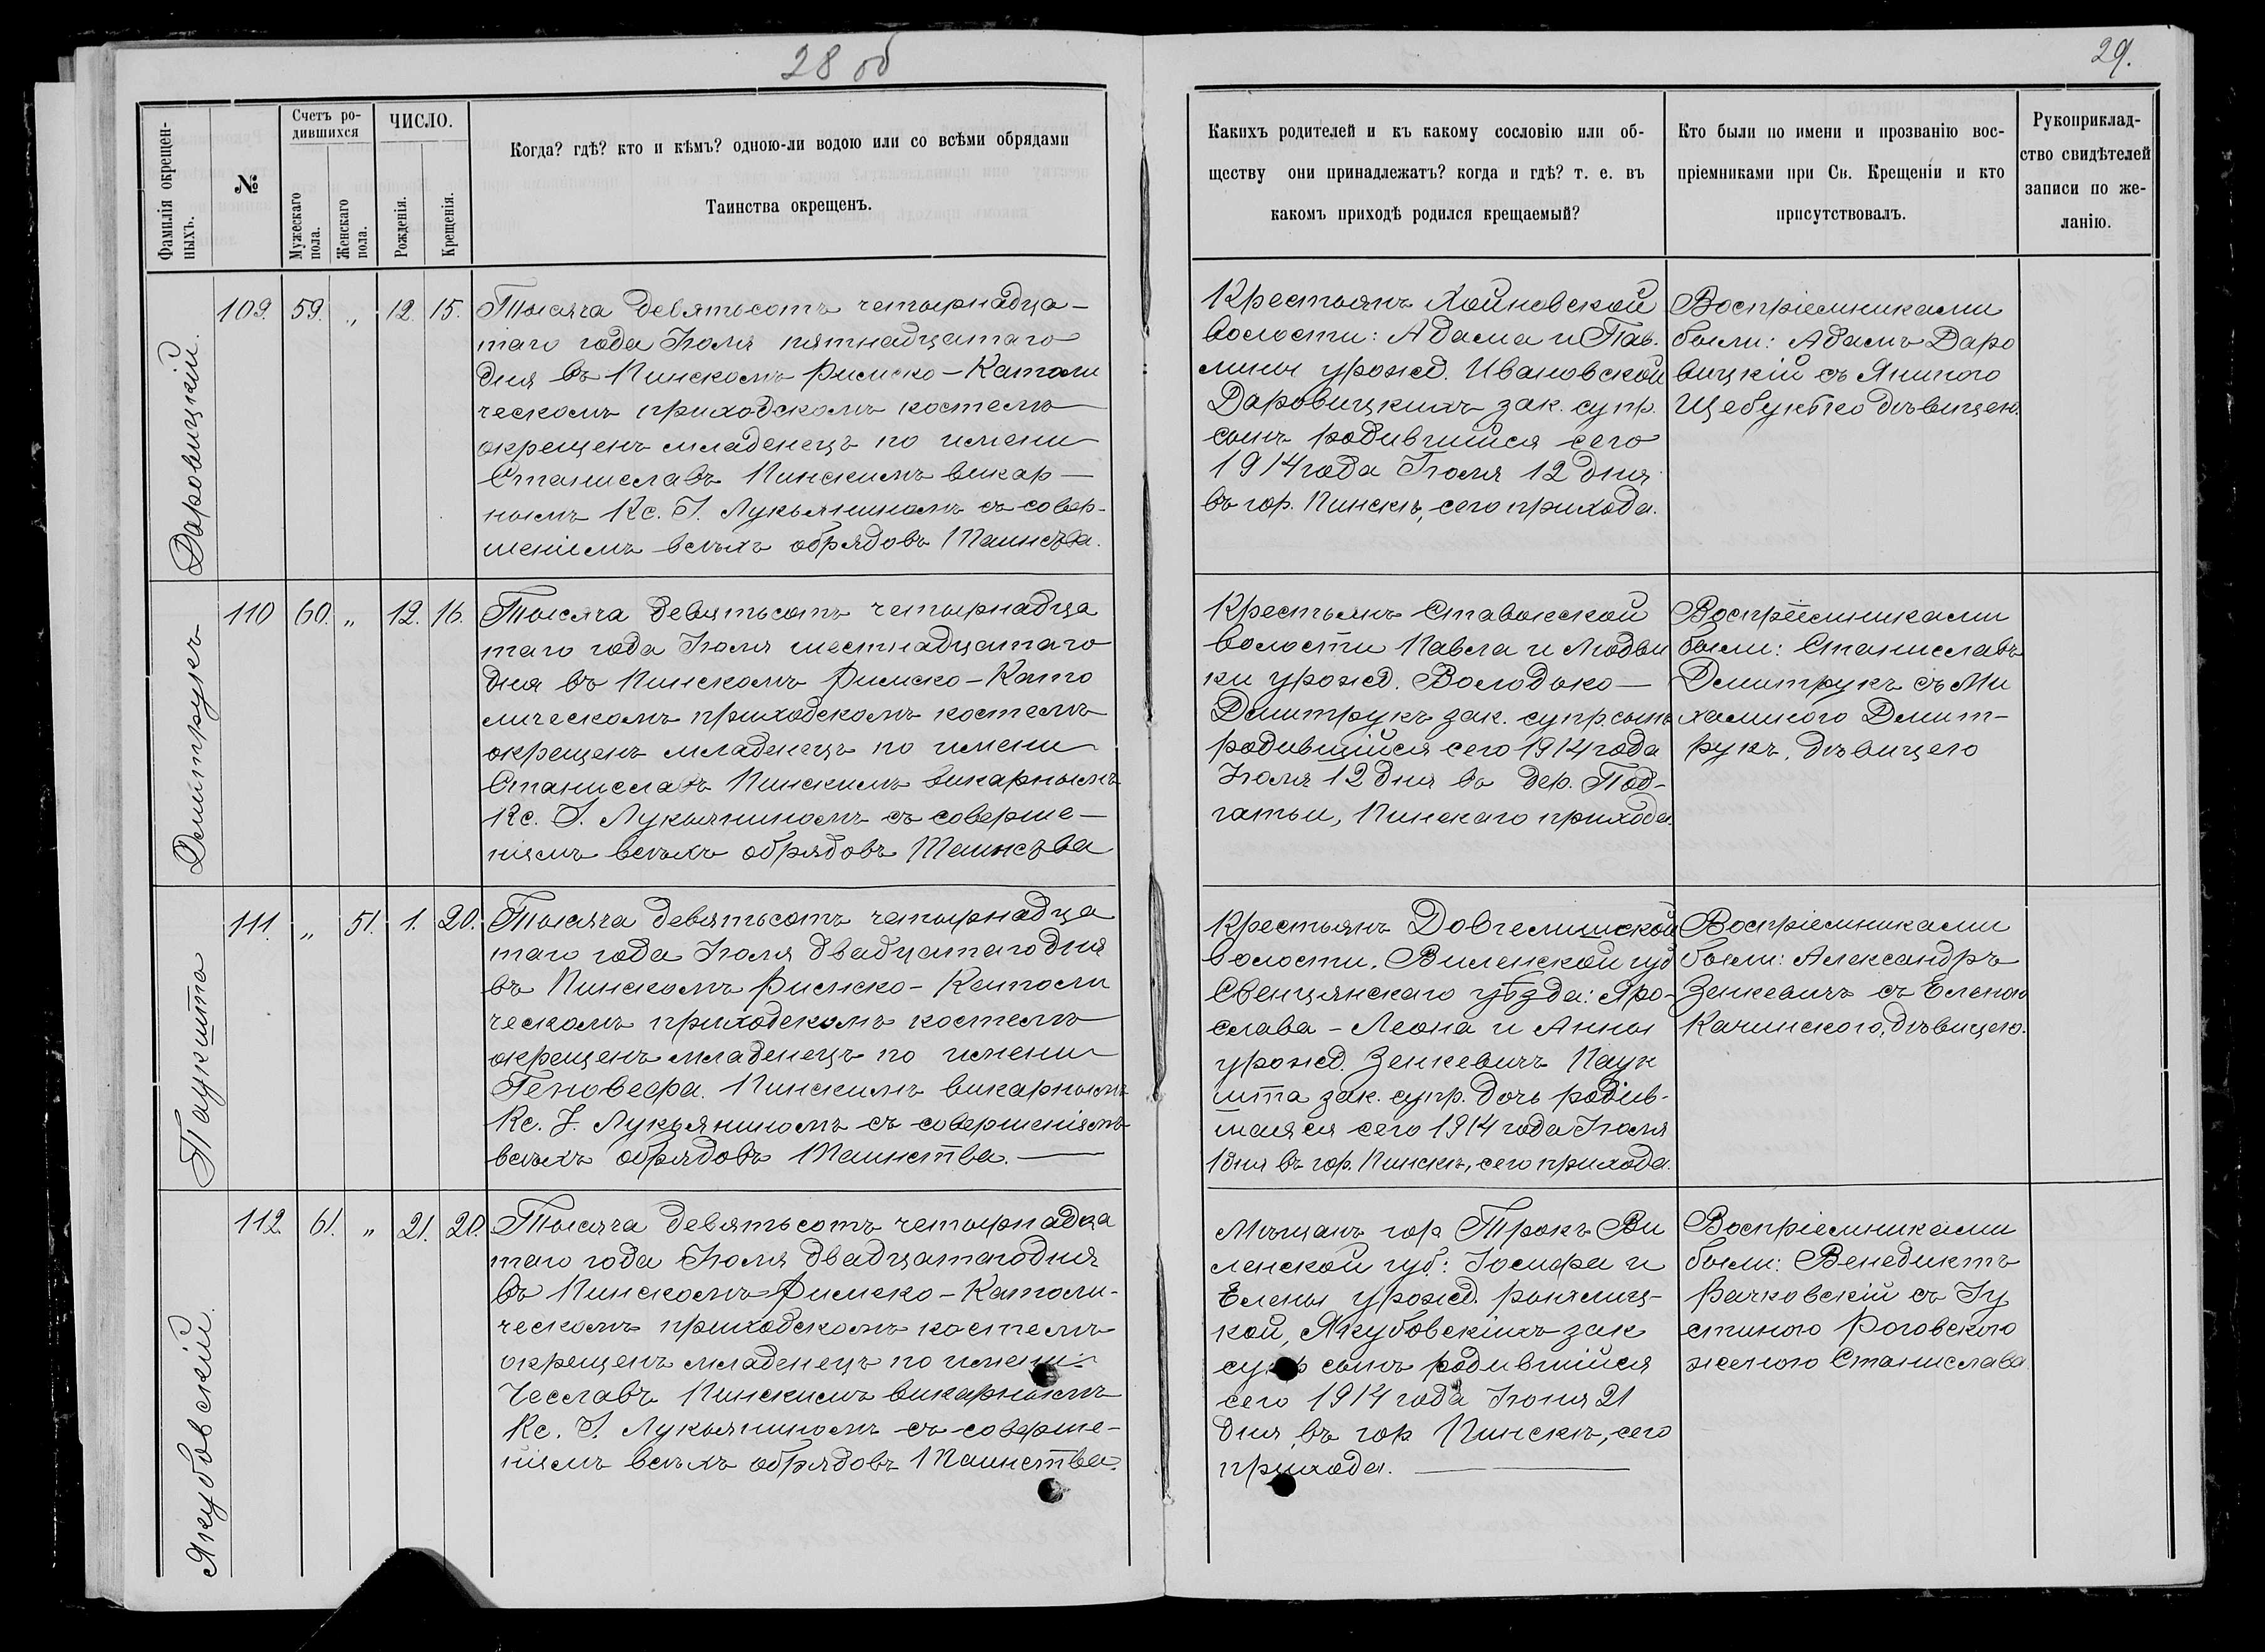 28 об
29.
Фамилія окрещен-
ныхъ.
№
Счетъ ро-
дившихся
Мужескаго
пола.
Женскаго
пола.
ЧИСЛО.
Рожденія.
Крещенія.
Когда? гдѣ? кто и кѣмъ? одною-ли водою или со всѣми обрядами
Таинства окрещенъ.
Какихъ родителей и къ какому сословію или об-
ществу они принадлежатъ? когда и гдѣ? т. е. въ
какомъ приходѣ родился крещаемый?
Кто были по имени и прозванію вос-
пріемниками при Св. Крещеніи и кто
присутствовалъ.
Рукоприклад-
ство свидѣтелей
записи по же-
ланію.
Даровицкій.
109. 59. „ 12. 15.
Тысяча девятьсотъ четырнадца-
таго года Іюля пятнадцатаго
дня въ Пинскомъ Римско-Католи
ческомъ приходскомъ костелѣ
окрещенъ младенецъ по имени
Станиславъ Пинскимъ викар-
нымъ Кс. І. Лукьяниномъ съ совер-
шеніемъ всѣхъ обрядовъ Таинства.
Крестьянъ Хойновской
волости: Адама и Пав.
лины урожд. Ивановской
Даровицкихъ зак. супр.
сынъ родившійся сего
1914 года Іюля 12 дня
въ гор. Пинскѣ, сего прихода.
Воспріемниками
были: Адамъ Даро
вицкій съ Яниною
Щебунѣко дѣвицею.
Дмитрукъ
110 60. „ 12. 16.
Тысяча девятьсотъ четырнадца
таго года Іюля шестнадцатаго
дня въ Пинскомъ Римско-Като
лическомъ приходскомъ костелѣ
окрещенъ младенецъ по имени
Станиславъ Пинскимъ викарнымъ
Кс. І. Лукьяниномъ съ соверше-
ніемъ всѣхъ обрядовъ Таинства
Крестьянъ Ставокской
волости Павла и Людви
ки урожд. Володько-
Дмитрукъ зак. супр. сынъ
родившійся сего 1914 года
Іюля 12 дня въ дер. Под-
гатьи, Пинскаго прихода.
Воспріемниками
были: Станиславъ
Дмитрукъ съ Ми
халиною Дмит-
рукъ, дѣвицею
Паукшта
111. „ 51. 1. 20.
Тысяча девятьсотъ четырнадца
таго года Іюля двадцатаго дня
въ Пинскомъ Римско-Католи
ческомъ приходскомъ костелѣ
окрещенъ младенецъ по имени
Геновефа. Пинскимъ викарнымъ
Кс. І. Лукьяниномъ съ совершеніемъ
всѣхъ обрядовъ Таинства.
Крестьянъ Довгелишской
волости. Виленской губ
Свенцянскаго уѣзда: Яро-
слава-Леона и Анны
урожд. Зенкевичъ Паук
шта зак. супр. дочь родив-
шаяся сего 1914 года Іюля
1 дня въ гор. Пинскѣ, сего прихода.
Воспріемниками
были: Александръ
Зенкевичъ съ Еленою
Качинскою, дѣвицею.
Якубовскій.
112. 61. „ 21. 20.
Тысяча девятьсотъ четырнадца
таго года Іюля двадцатаго дня
въ Пинскомъ Римско-Католи-
ческомъ приходскомъ костелѣ
окрещенъ младенецъ по имени
Чеславъ Пинскимъ викарнымъ
Кс. І. Лукьяниномъ съ соверше-
ніемъ всѣхъ обрядовъ Таинства.
Мѣщанъ гор Трокъ Ви
ленской губ: Іосифа и
Елены урожд.
Якубовскихъ зак
супр сынъ родившійся
сего 1914 года Іюня 21
дня, въ гор Пинскѣ, сего
прихода.
Воспріемниками
были: Венедиктъ
Рачковскій съ Іу
стиною Роговскою
женою Станислава.